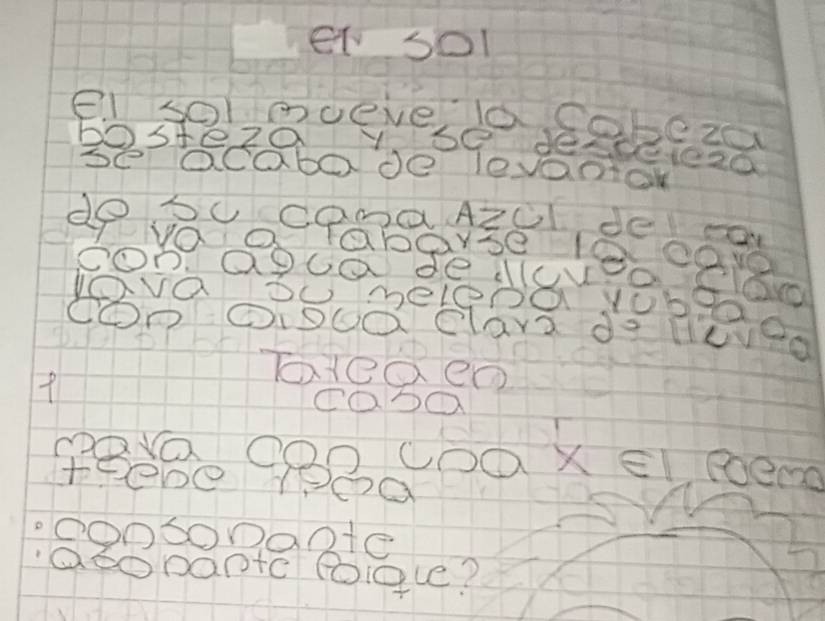 el sol
El sol mueve la cabeza
bosteza y se despereza
se acaba de levantar
de su cama Azul del mar
va a labarse la cara
con agua de lluvia clara
lava su melena rubia
con agua clara de lluvia
Tarea en
casa
marca con una X El Poema
tiene rima
• consonante
• asonante Porque?